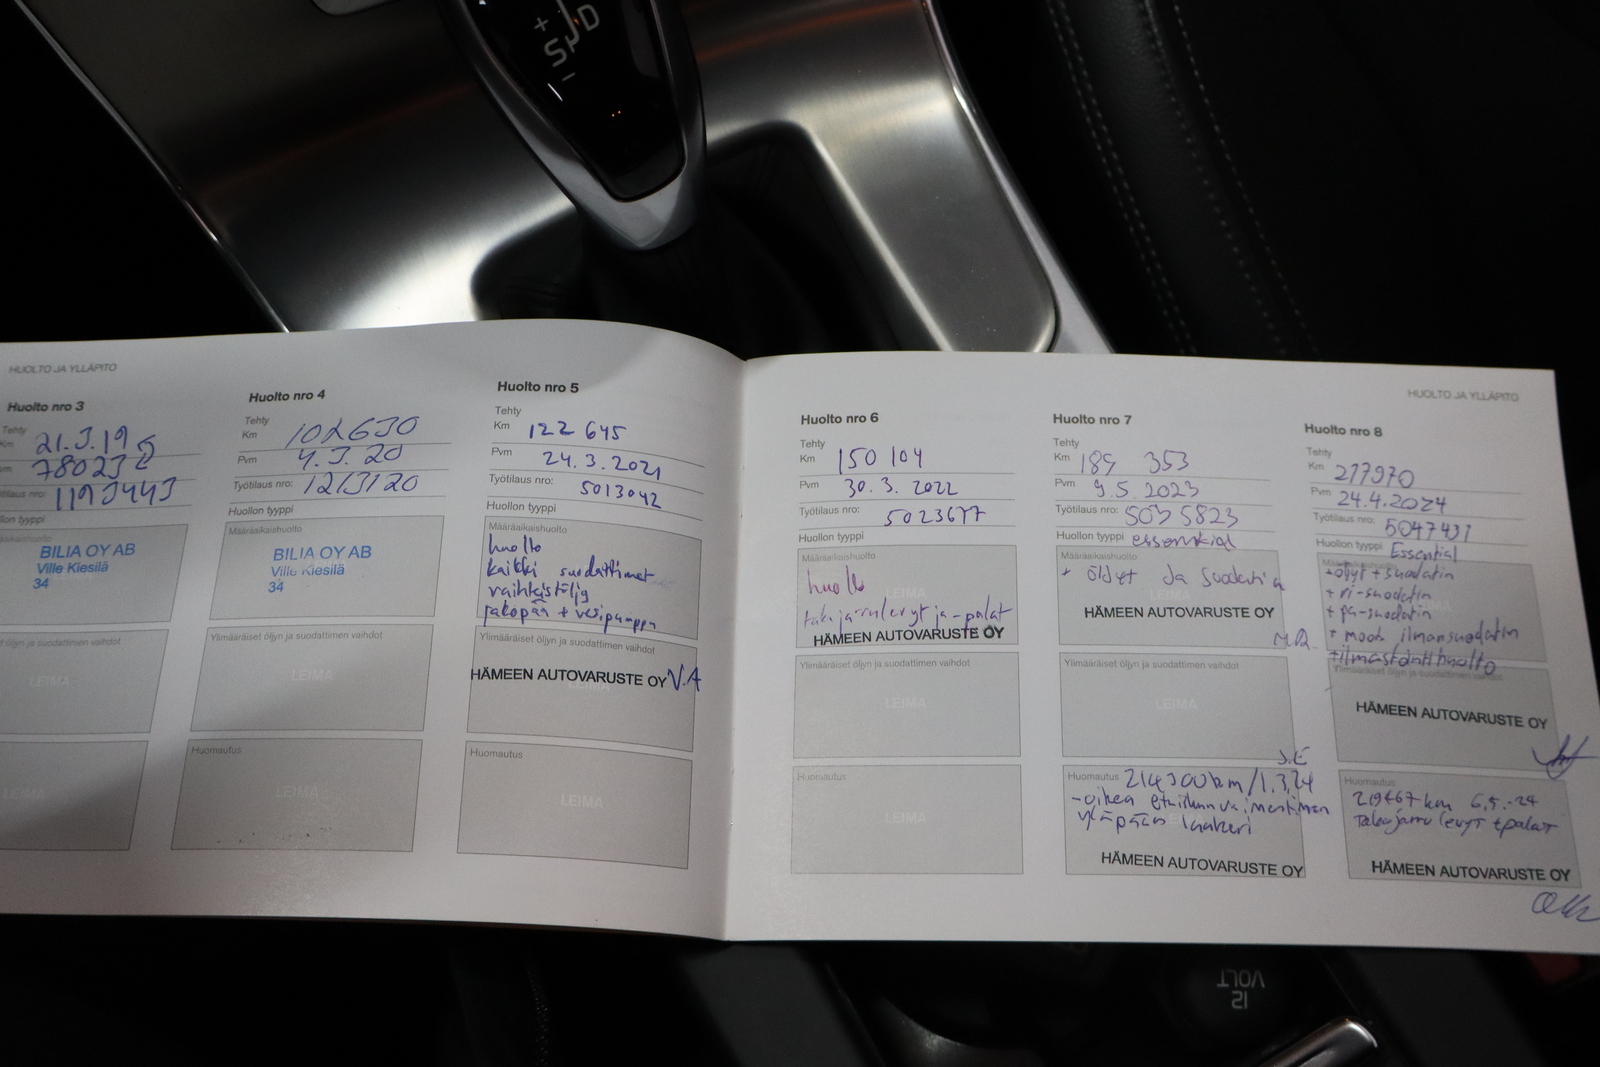 +
S D
–
HUOLTO JA YLLÄPITO
Huolto nro 3
Tehty
Km 21.3.19
78023
Työtilaus nro: 1193443
Huollon tyyppi
Määräaikaishuolto
BILIA OY AB
Ville Kiesilä
34
LEIMA
LEIMA
Huolto nro 4
Tehty
Km 102630
Pvm 4.3.20
Työtilaus nro: 1213120
Huollon tyyppi
Määräaikaishuolto
BILIA OY AB
Ville Kiesilä
34
Ylimääräiset öljyn ja suodattimen vaihdot
LEIMA
Huomautus
LEIMA
Huolto nro 5
Tehty
Km 122 645
Pvm 24.3.2021
Työtilaus nro: 5013042
Huollon tyyppi
Määräaikaishuolto
huolto
kaikki suodattimet
vaihteistöljy
jakopää + vesipumppu
Ylimääräiset öljyn ja suodattimen vaihdot
HÄMEEN AUTOVARUSTE OY V.A
LEIMA
Huomautus
LEIMA
HUOLTO JA YLLÄPITO
Huolto nro 6
Tehty
Km 150 104
Pvm 30.3.2022
Työtilaus nro: 5023677
Huollon tyyppi
Määräaikaishuolto
huolto
LEIMA
takajarrulevyt ja -palat
HÄMEEN AUTOVARUSTE OY
Ylimääräiset öljyn ja suodattimen vaihdot
LEIMA
Huomautus
LEIMA
Huolto nro 7
Tehty
Km 189 353
Pvm 9.5.2023
Työtilaus nro: 5035823
Huollon tyyppi essential
Määräaikaishuolto
+ öljyt ja suodatin
HÄMEEN AUTOVARUSTE OY
Ylimääräiset öljyn ja suodattimen vaihdot
LEIMA
J.E
Huomautus 214300km/1.3.24
-oikea etuiskunvaimentimen
yläpään laakeri
HÄMEEN AUTOVARUSTE OY
Huolto nro 8
Tehty
Km 217970
Pvm 24.4.2024
Työtilaus nro: 5047431
Huollon tyyppi Essential
+öljyt+suodatin
+ ri-suodatin
+ pa-suodatin
+ moot ilmansuodatin
+ilmastointihuolto
Ylimääräiset öljyn ja suodattimen vaihdot
HÄMEEN AUTOVARUSTE OY
Huomautus
219467 km 6.5.-24
Takajarru levyt +palat
HÄMEEN AUTOVARUSTE OY
12
VOLT